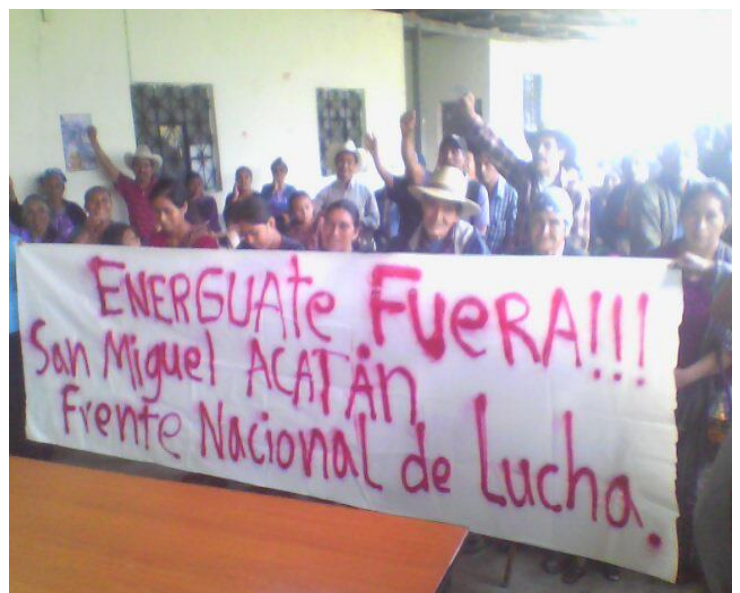 ENERGUAte FUeRA!!!
San Miguel ACATÁn
Frente Nacional de Lucha.